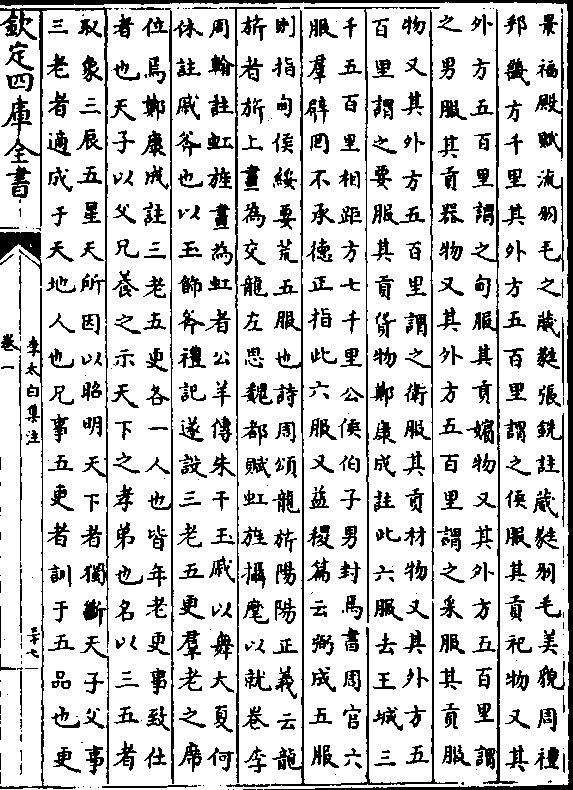 景福殿賦流羽毛之葳蕤張銑註葳蕤羽毛美貌周禮
邦畿方千里其外方五百里謂之侯服其貢祀物又其
外方五百里謂之甸服其貢嬪物又其外方五百里謂
之男服其貢器物又其外方五百里謂之采服其貢服
物又其外方五百里謂之衛服其貢材物又其外方五
百里謂之要服其貢貨物鄭康成註此六服去王城三
千五百里相距方七千里公侯伯子男封焉書周官六
服羣辟罔不承德正指此六服又益稷篇云弼成五服
則指甸侯綏要荒五服也詩周頌龍旂陽陽正義云龍
旂者旂上畫為交龍左思魏都賦虹旌攝麾以就卷李
周翰註虹旌畫為虹者公羊傳朱干玉戚以舞大夏何
休註戚斧也以玉飾斧禮記遂設三老五更羣老之席
位焉鄭康成註三老五更各一人也皆年老更事致仕
者也天子以父兄養之示天下之孝弟也名以三五者
取象三辰五星天所因以昭明天下者獨斷天子父事
三老者適成于天地人也兄事五更者訓于五品也更
欽定四庫全書
李太白集注
卷一
三十七